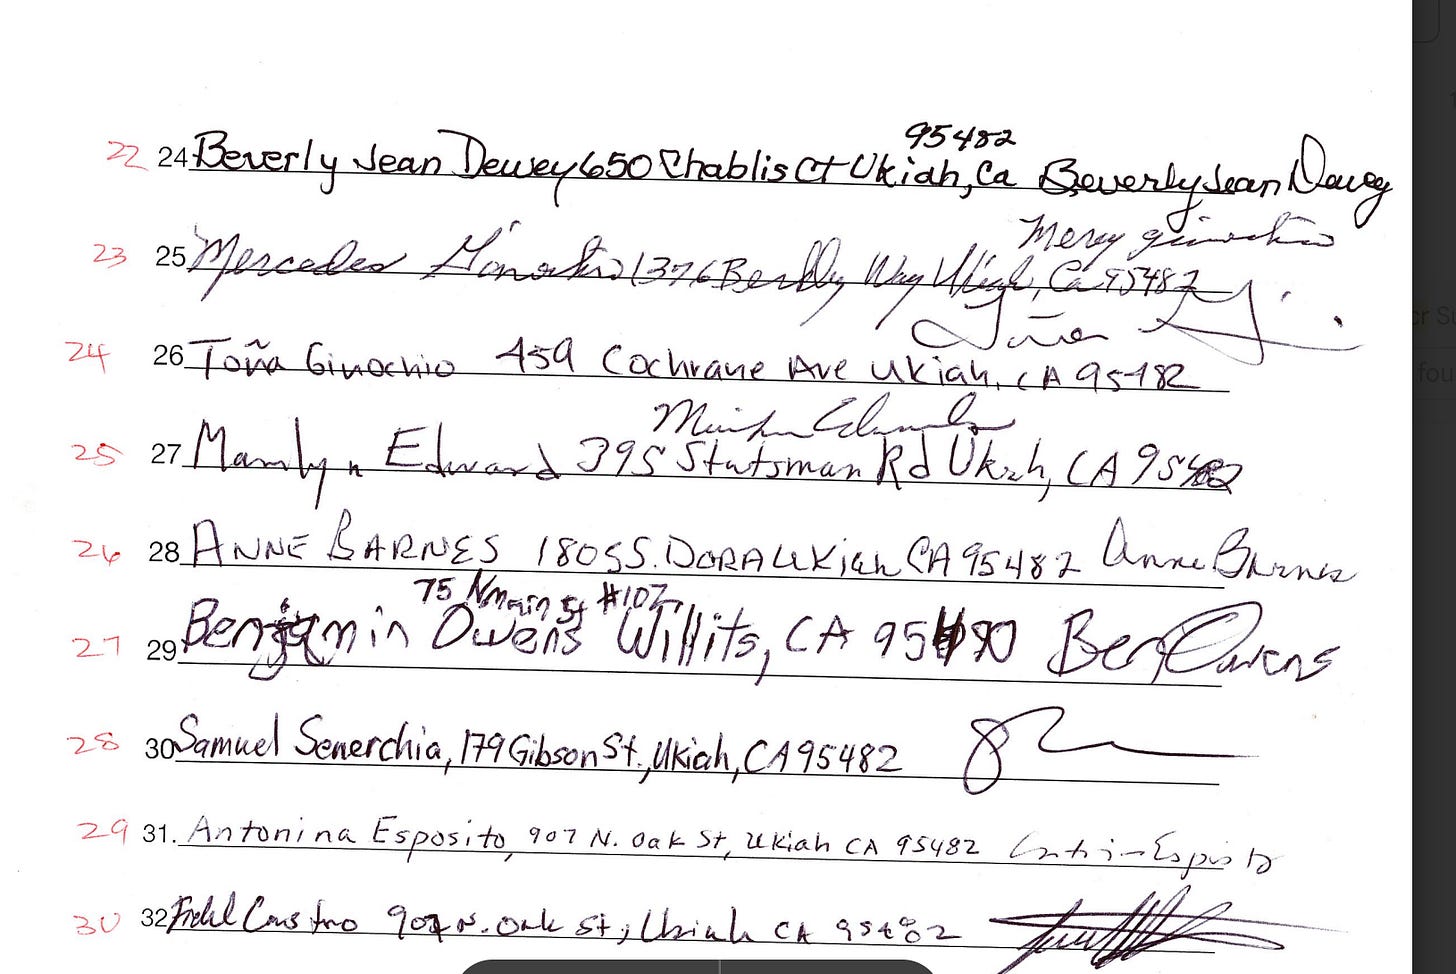 95482
22 24 Beverly Jean Dewey 650 Chablis Ct Ukiah, Ca Beverly Jean Dewey
Mercy ginochio
23 25 Mercedes Ginochio 1376 Berkley Way Ukiah, Ca 95482
Toña
24 26 Toña Ginochio 459 Cochrane Ave Ukiah, CA 95482
25 27 Marilyn Edward 395 Statsman Rd Ukiah, CA 95482
26 28 ANNE BARNES 1805 S. DORA Ukiah CA 95482 Anne Barnes
75 N main St #107
27 29 Benjamin Owens Willits, CA 95490 Ben Owens
28 30 Samuel Senerchia, 179 Gibson St., Ukiah, CA 95482
29 31. Antonina Esposito, 907 N. Oak St, Ukiah CA 95482
30 32 907 N. Oak St, Ukiah CA 95482